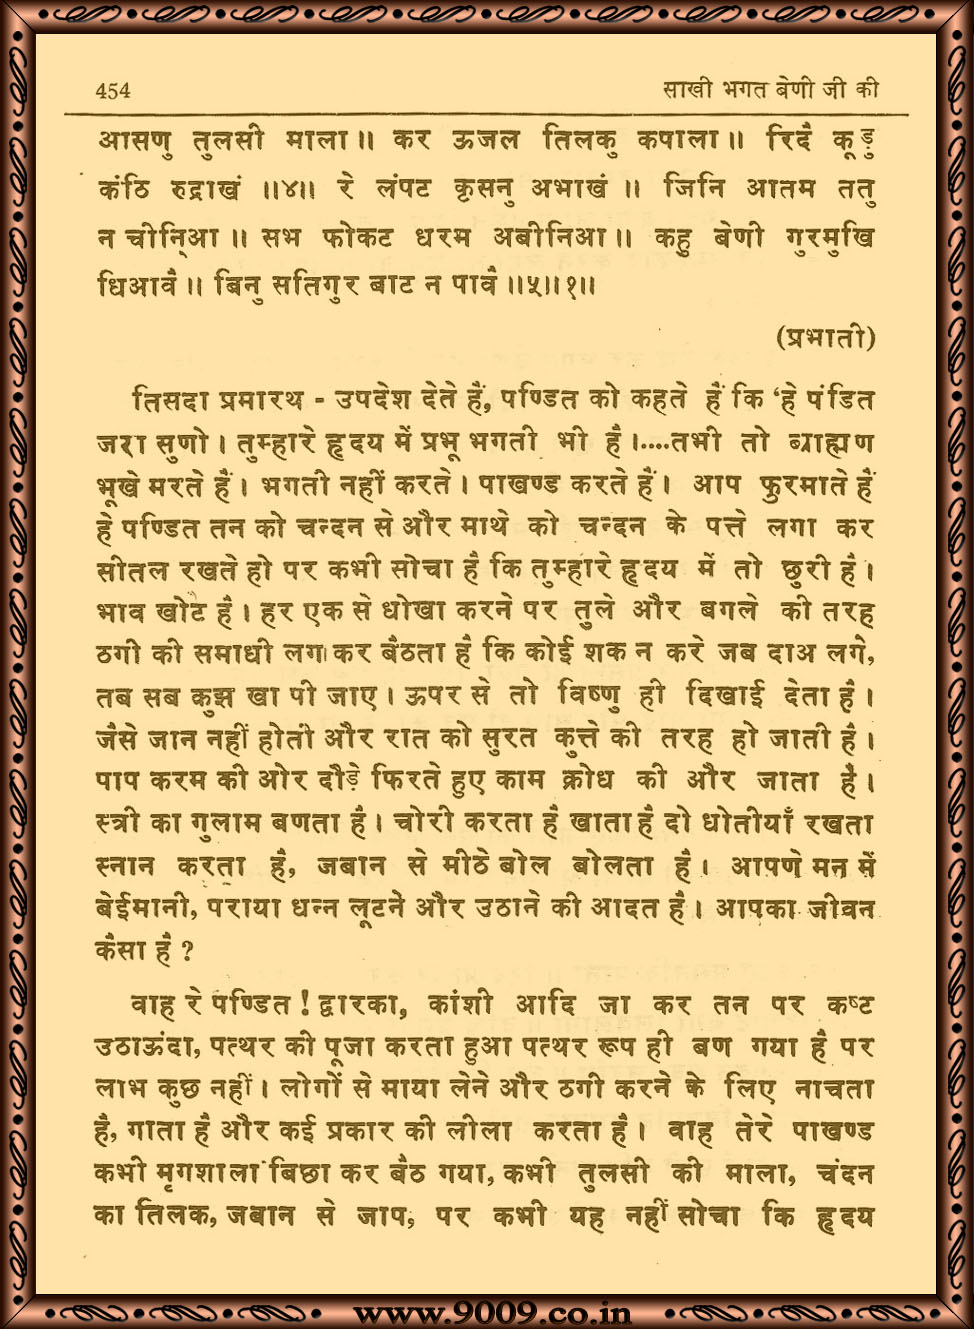 454 साखी भगत बेणी जी की
आसणु तुलसी माला॥ कर ऊजल तिलकु कपाला॥ रिदै कूड़ु
कंठि रुद्राखं ॥४॥ रे लंपट कृसनु अभाखं ॥ जिनि आतम ततु
न चीनि्आ॥ सभ फोकट धरम अबीनिआ॥ कहु बेणी गुरमुखि
धिआवै॥ बिनु सतिगुर बाट न पावै॥५॥१॥
(प्रभाती)
तिसदा प्रमारथ - उपदेश देते हैं, पण्डित को कहते हैं कि ‘हे पंडित
जरा सुणो। तुम्हारे हृदय में प्रभू भगती भी है।....तभी तो ब्राह्मण
भूखे मरते हैं। भगती नहीं करते। पाखण्ड करते हैं। आप फुरमाते हैं
हे पण्डित तन को चन्दन से और माथे को चन्दन के पत्ते लगा कर
सीतल रखते हो पर कभी सोचा है कि तुम्हारे हृदय में तो छुरी है।
भाव खोट है। हर एक से धोखा करने पर तुले और बगले की तरह
ठगी की समाधी लगा कर बैठता है कि कोई शक न करे जब दाअ लगे,
तब सब कुझ खा पी जाए। ऊपर से तो विष्णु ही दिखाई देता है।
जैसे जान नहीं होती और रात को सुरत कुत्ते की तरह हो जाती है।
पाप करम की ओर दौड़े फिरते हुए काम क्रोध की और जाता है।
स्त्री का गुलाम बणता है। चोरी करता है खाता है दो धोतीयाँ रखता
स्नान करता है, जबान से मीठे बोल बोलता है। आपणे मन में
बेईमानी, पराया धन्न लूटने और उठाने की आदत है। आपका जीवन
कैसा है ?
वाह रे पण्डित! द्वारका, कांशी आदि जा कर तन पर कष्ट
उठाऊंदा, पत्थर की पूजा करता हुआ पत्थर रूप ही बण गया है पर
लाभ कुछ नहीं। लोगों से माया लेने और ठगी करने के लिए नाचता
है, गाता है और कई प्रकार की लीला करता है। वाह तेरे पाखण्ड
कभी मृगशाला बिछा कर बैठ गया, कभी तुलसी की माला, चंदन
का तिलक, जबान से जाप, पर कभी यह नहीं सोचा कि हृदय
www.9009.co.in